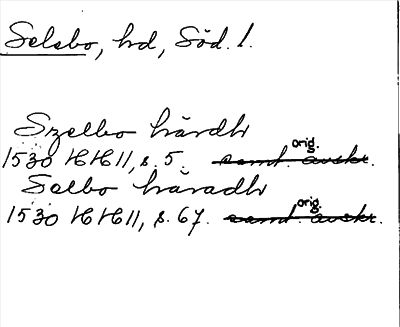 Selebo, hd, Söd. l.
Szelbo hàrdh
1530 HH II, s. 5. samt. avskr. orig.
Selbo hàradh
1530 HH II, s. 67. samt. avskr. orig.